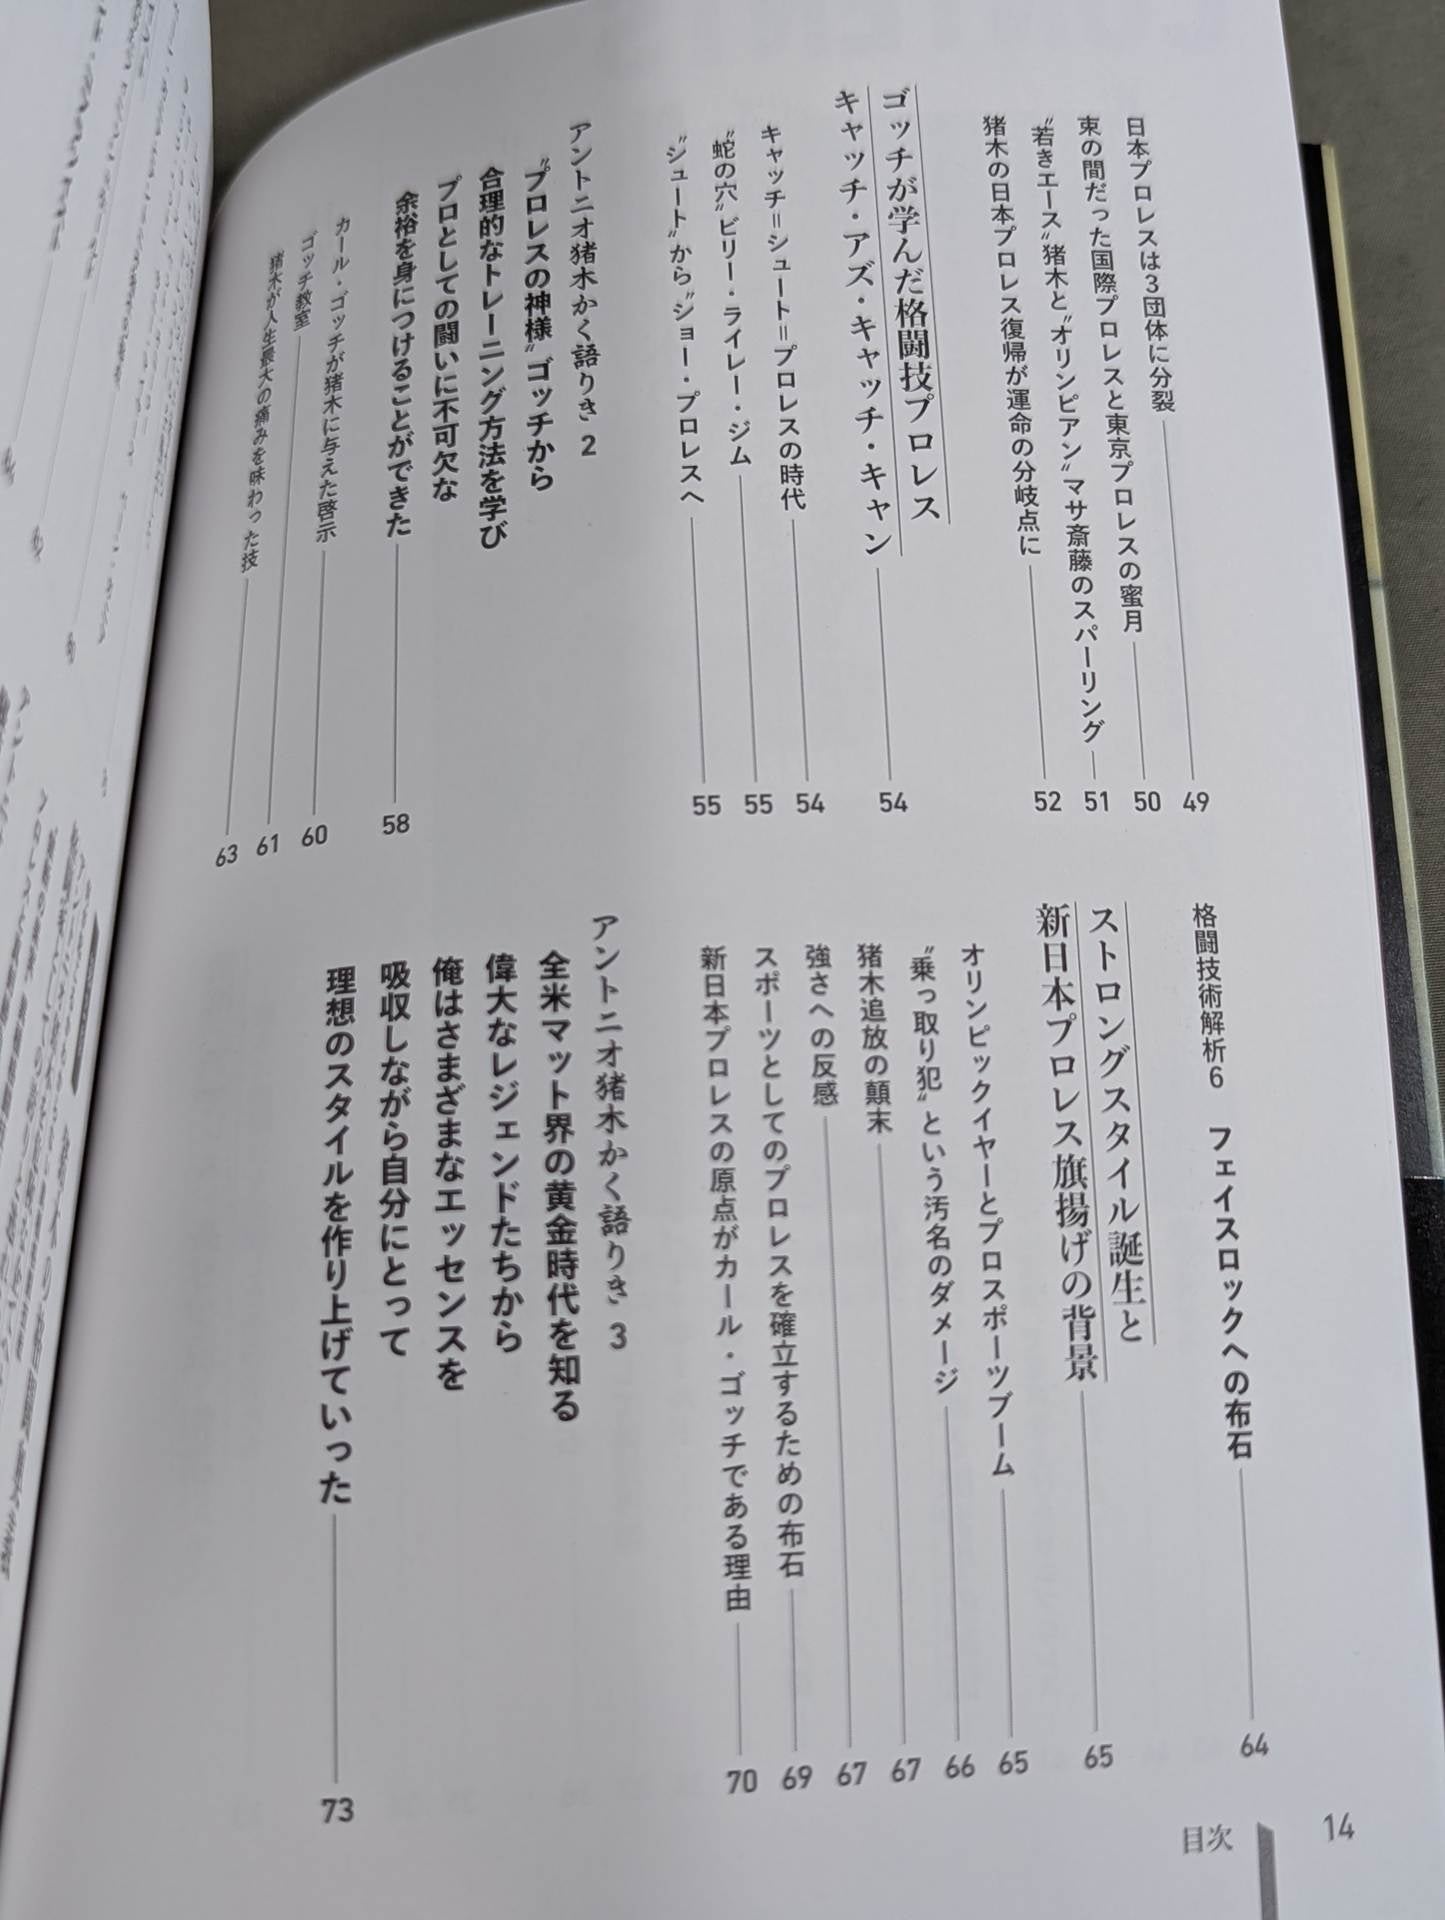 日本プロレスは3団体に分裂 49
束の間だった国際プロレスと東京プロレスの蜜月 50
〝若きエース〟猪木と〝オリンピアン〟マサ斎藤のスパーリング 51
猪木の日本プロレス復帰が運命の分岐点に 52
ゴッチが学んだ格闘技プロレス
キャッチ・アズ・キャッチ・キャン 54
キャッチ＝シュート＝プロレスの時代 54
〝蛇の穴〟ビリー・ライレー・ジム 55
〝シュート〟から〝ショー・プロレスへ 55
アントニオ猪木かく語りき 2
〝プロレスの神様〟ゴッチから
合理的なトレーニング方法を学び
プロとしての闘いに不可欠な
余裕を身につけることができた 58
カール・ゴッチが猪木に与えた啓示 60
ゴッチ教室 61
猪木が人生最大の痛みを味わった技 63
格闘技術解析6 フェイスロックへの布石 64
ストロングスタイル誕生と
新日本プロレス旗揚げの背景 65
オリンピックイヤーとプロスポーツブーム 65
〝乗っ取り犯〟という汚名のダメージ 66
猪木追放の顛末 67
強さへの反感 67
スポーツとしてのプロレスを確立するための布石 69
新日本プロレスの原点がカール・ゴッチである理由 70
アントニオ猪木かく語りき 3
全米マット界の黄金時代を知る
偉大なレジェンドたちから
俺はさまざまなエッセンスを
吸収しながら自分にとって
理想のスタイルを作り上げていった 73
目次
14